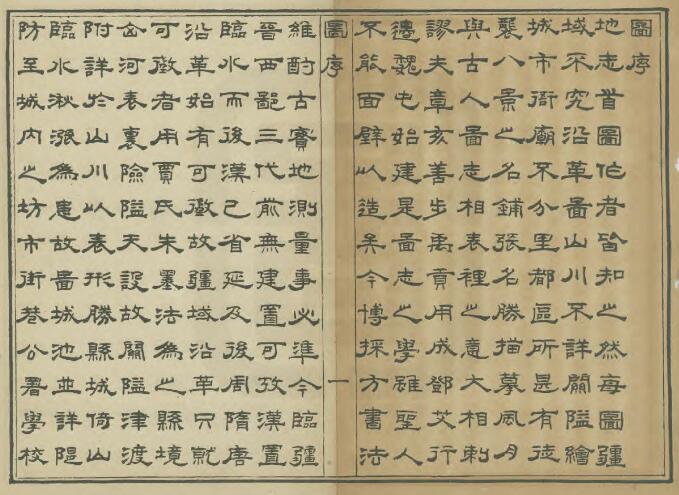 圖序
地志首圖作者皆知之然每圖疆
域不究沿革圖山川不詳關隘繪
城市衙廟不分里都區所甚有徒
襲八景之名鋪張名勝描摹風月
與古人圖志相表裡之意大相剌
謬夫章亥善步禹貢用成鄧艾行
邊魏屯始建是圖志之學雖聖人
不能面壁以造矣今博採方書法
圖序 一
維酌古實地測量事必準今臨疆
晉西鄙三代前無建置可攷漢置
臨水而後漢已省延及後周隋唐
沿革始有可徵故疆域沿革只就
可徵者用賈氏朱墨法為之縣境
河表裏險隘天設故關隘津渡
附詳於山川以表形勝縣城倚山
臨水湫漲為患故圖城池並詳隄
防至城內之坊市街巷公署學校